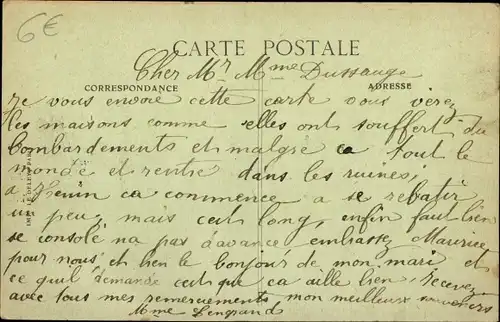 6€
CARTE POSTALE
Cher Mr Mme Dussauge
CORRESPONDANCE
ADRESSE
Je vous envoie cette carte vous verez
les maisons comme elles ont souffert du
bombardements et malgre ca tout le
monde et rentré dans les ruines,
a Henin ca commence a se rebatir
un peu, mais cest long, enfin faut bien
se consolé na pas d'avance embrassez Maurice
pour nous et bien le bonjour de mon mari et
ce quil demande cest que ca aille bien, recevez
avec tous mes remerciements, mon meilleur souvenirs
Mme Lengrand